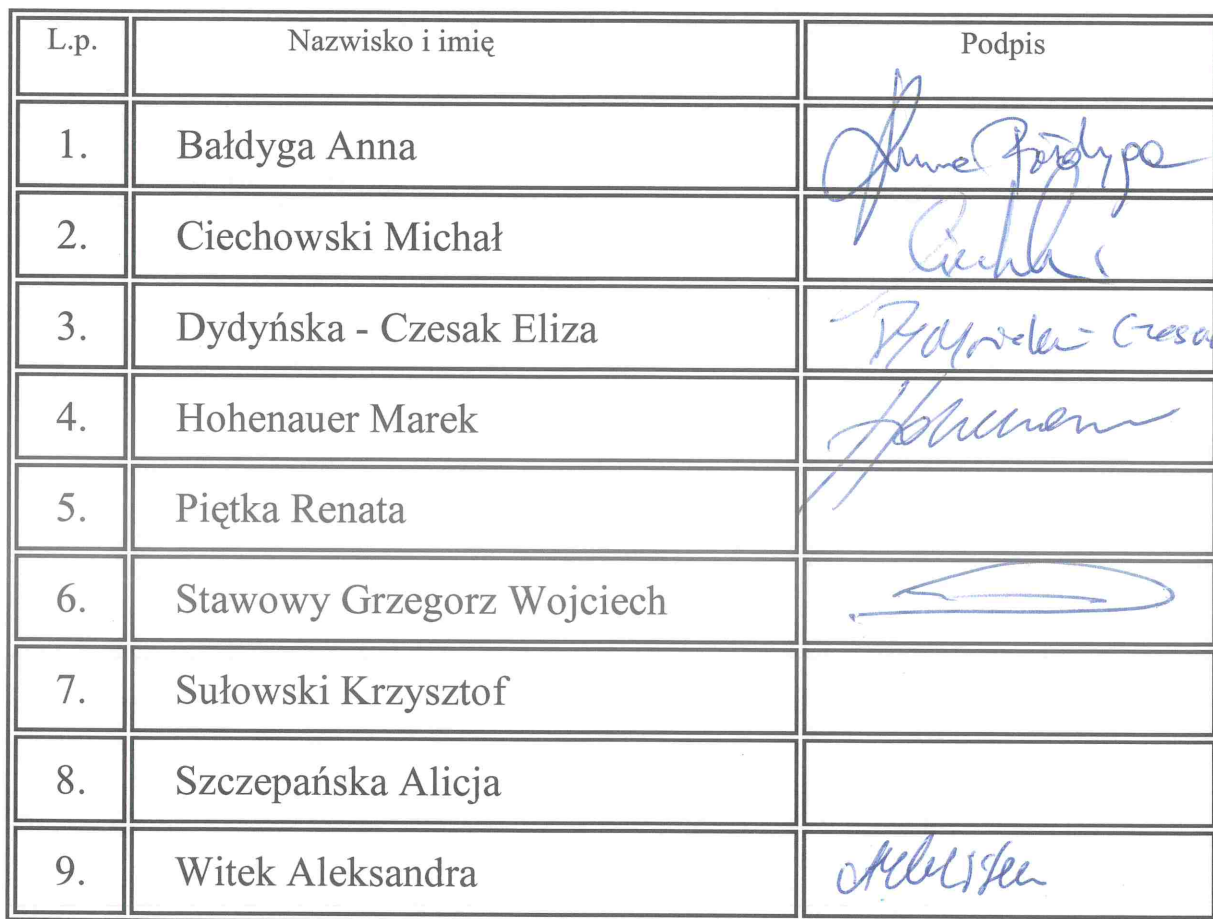 L.p. Nazwisko i imię Podpis
1. Bałdyga Anna Anna Bałdyga
2. Ciechowski Michał
3. Dydyńska - Czesak Eliza Dydyńska - Czesa
4. Hohenauer Marek
5. Piętka Renata
6. Stawowy Grzegorz Wojciech
7. Sułowski Krzysztof
8. Szczepańska Alicja
9. Witek Aleksandra